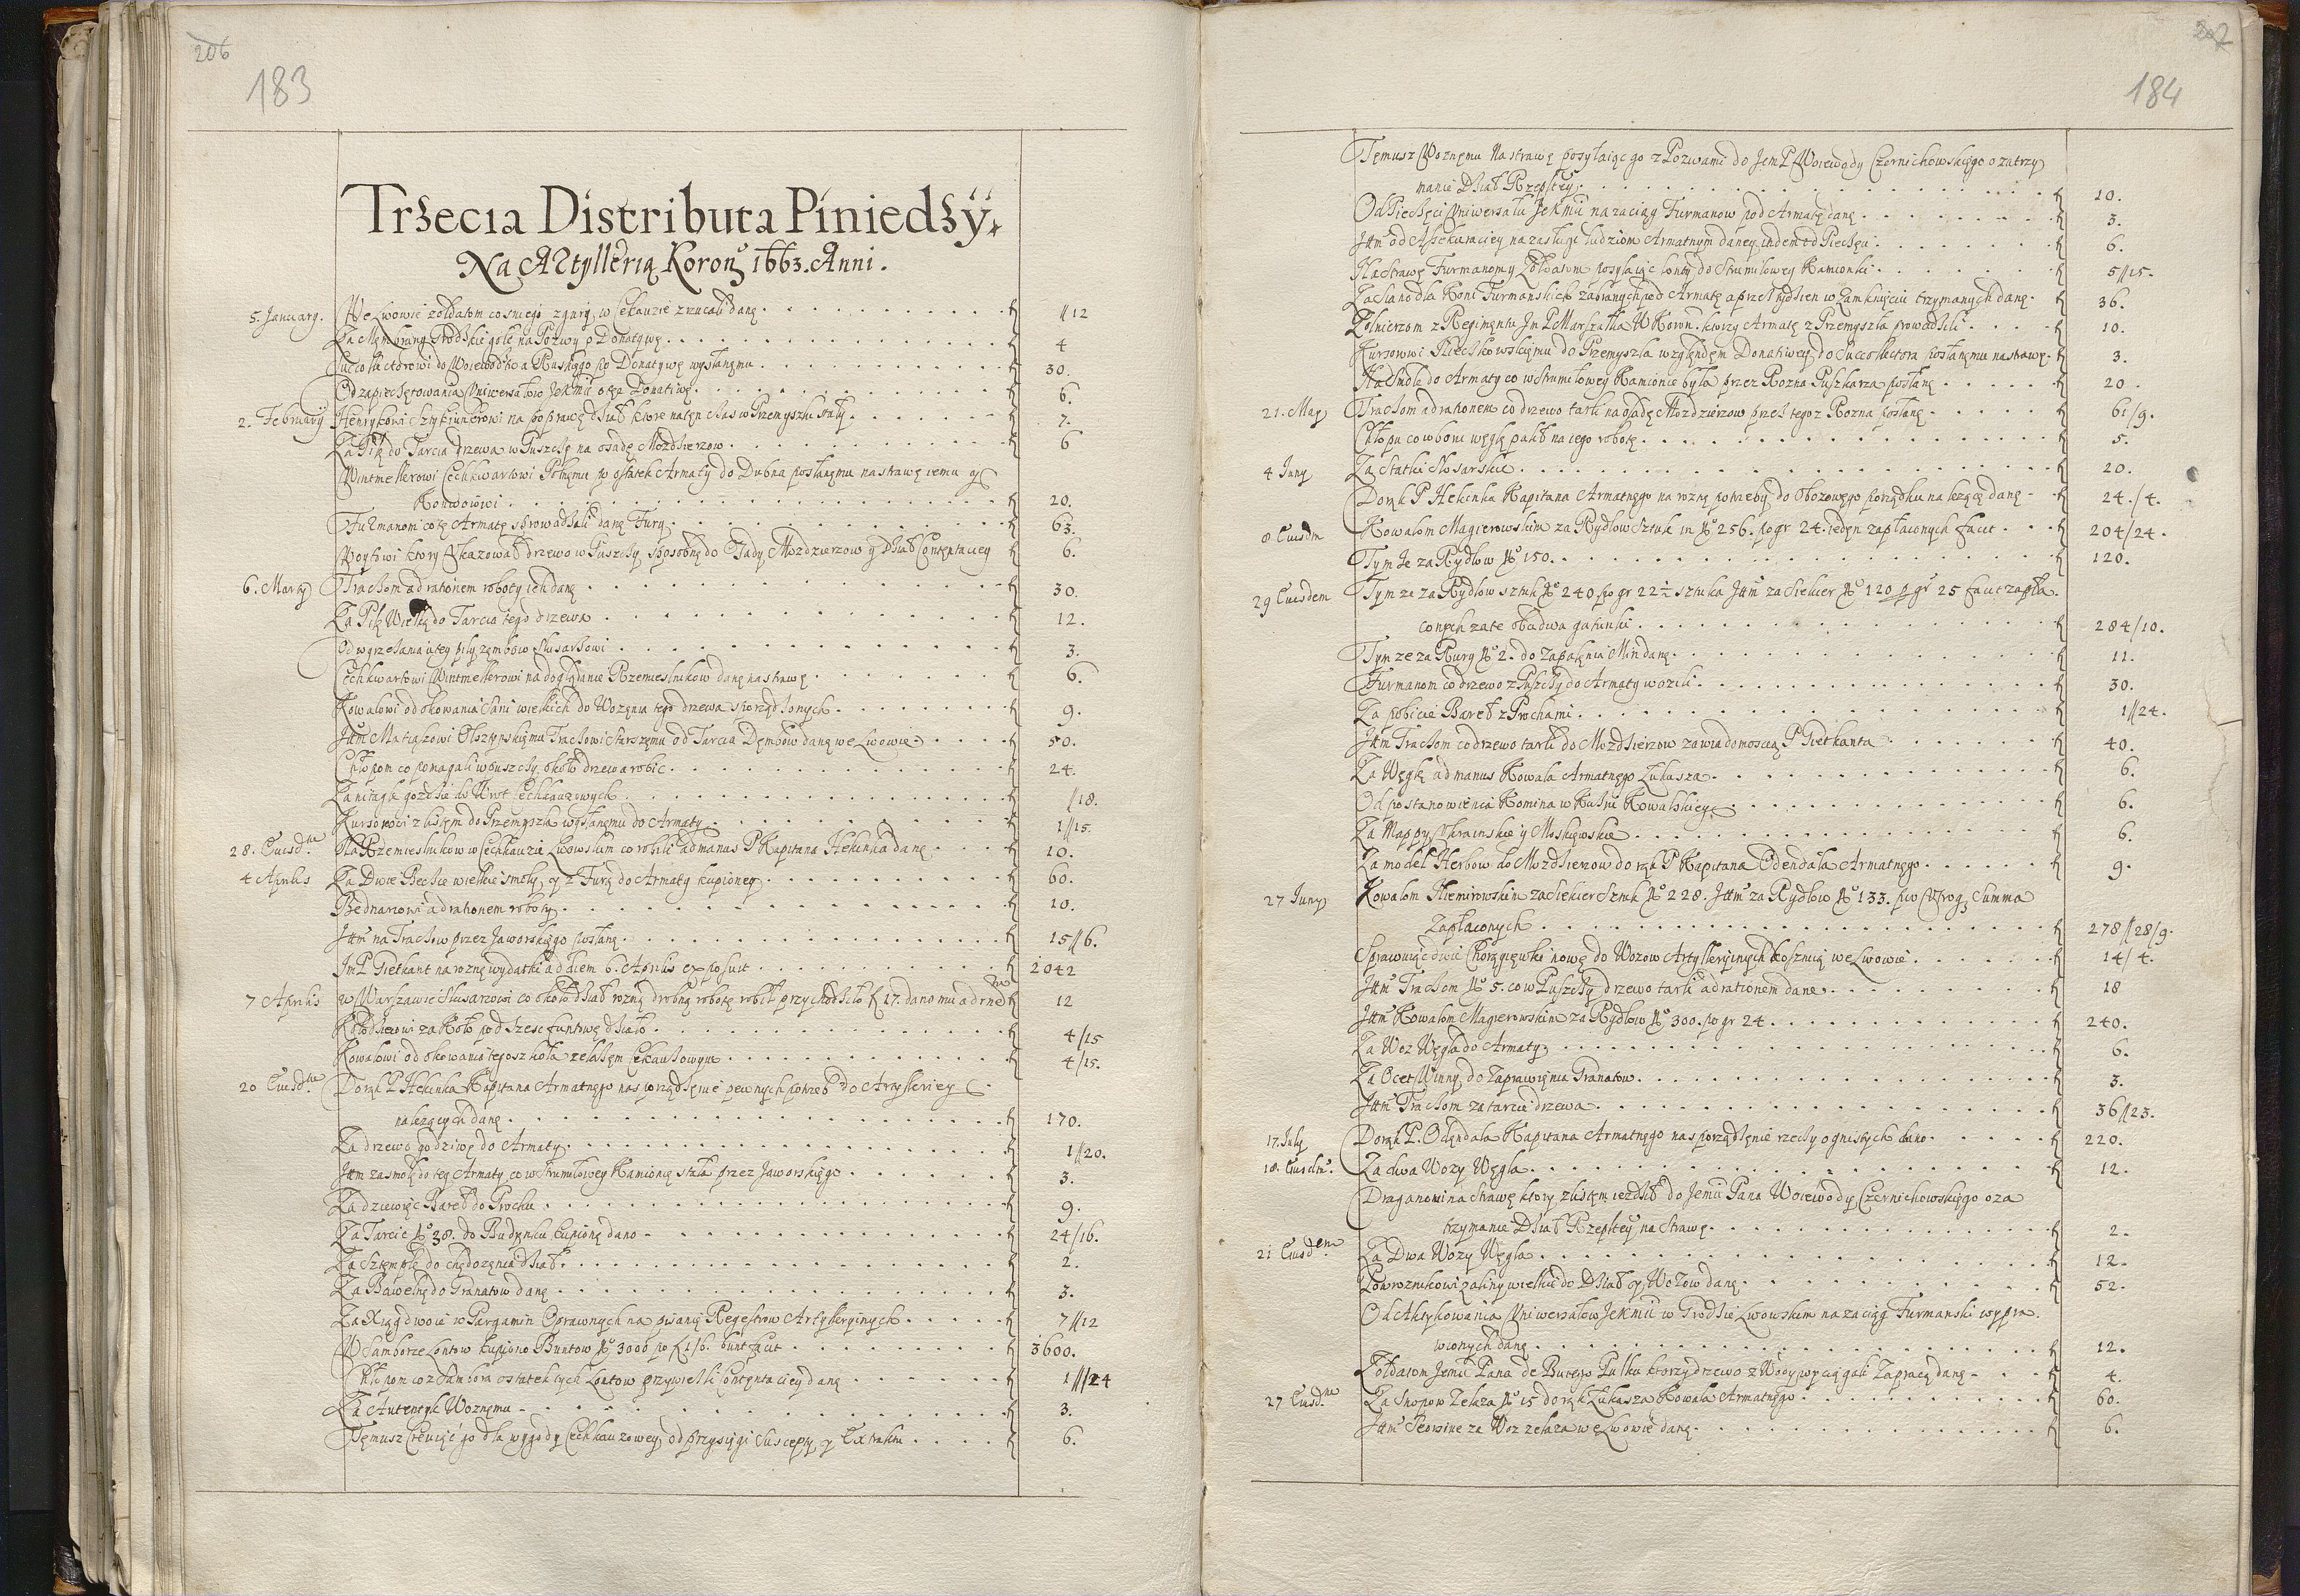 206
183
Trzecia Distributa Piniedzÿ.
Na Artyllerią Koronᶎ 1663. Anni.
5. January. We Lwowie zołdatom co sniego z gury w Cekauzie zrucali danę f //12
Za Membrany Grodskie gołe na Pozwy o Donatywę f 4
Succollectorowi do Woiewodztwa Ruskiego po Donatywę wysłanemu f 30.
Od zapieczętowania Uniwersałow JeKMci o też Donatiwę f 6.
2. February Henrykowi Sztykiunkrowi na poprawę dział ktore na ten czas w Przemyszlu stały f 7.
Za Piłę do Tarcia drzewa w Puszczy na osadę Mozdzierzow f 6
Wintmellerowi Cechkwartowi Polnemu po ostatek Armaty do Dubna posłanemu na strawę iemu y
Konwoiowi f 20.
Furmanom co tę Armatę sprowadzali danę Furę f 63.
Woytowi ktory ukazował drzewo w Puszczy sposobne do Osady Mozdzierzow y Dział Contentaciey f 6.
6. Marty Traczom ad rationem roboty ich danę f 30.
Za Piłę Wielką do Tarcia tego drzewa f 12.
Od wyrzezania u tey piły zembow Slusarzowi f 3.
Cechkwartowi Wintmellerowi na doglądanie Rzemieslnikow danę na strawę f 6.
Kowalowi od okowania Sani wielkich do Wozenia tego drzewa sporządzonych f 9.
Ittm Matiaszowi Olszynskiemu Traczowi starszemu od Tarcia Dembow danę we Lwowie f 50.
Chłopom co pomagali w puszczy około drzewa robic f 24.
Za gozdzie do Wrot Cechauzowych f //18.
Kursorowi z listem do Przemysla wysłanemu do Armaty f 1//15.
28. Eiusdm Na Rzemieslnikow w Cechkauzie Lwowskim co robili ad manus P Kapitana Hekinka danę f 10.
4 Aprilis Za Dwie Beczce wielkie smoły, y z Furą do Armaty kupioney f 60.
Bednarzowi ad rationem roboty f 10.
Ittm na Traczow przez Jaworskiego posłanę f 15//6.
JmP Gietkant na roznę wydatki ad diem 6. Aprilis exposuit f 2042
7 Aprilis w Warszawie Slusarzowi co około dział roznę drobnę robotę robił przychodziło f 17. dano mu ad rnem f 12
Kołodzieiowi za Koło pod szesc funtowe działo f 4/15
Kowalowi od okowania tegosz koła zelazem Cekauzowym f 4/15.
20 Eiusdm Do rąk P Hekinka Kapitana Armatnego na sporządzenie pewnych potrzeb do Artylleriey
nalezących danę f 170.
Za drzewo godziwe do Armaty f 1//20.
Ittm za smołę do tey Armaty co w Strumiłowey Kamionce stała przez Jaworskiego f 3.
Za dziewięć Bareł do Prochu f 9.
Za Tarcic No 38. do Budynku kupionę dano f 24/16.
Za Stemple do chędozenia dział f 2.
Za Bawełnę do Granatow danę f 3.
Za Xiąg dwoie w Pargamin Oprawnych na pisanie Regestrow Artylleryinych f 7//12
W Samborze Lontow kupiono Buntow No 3000 po f 1/6. bunt facit f 3600.
Chłopom co z Sambora ostatek tych Lontow przywiezli Contentaciey danę f 1//24
Za Autentyk Woznemu f 3.
Temusz Creuiąć go dla wygody Cechkauzowey, od przysięgi Suscepty y Extraktu f 6.
202
184
Temusz Woznemu Na strawę posyłaiąc go z Pozwami do JemP Woiewody Czernichowskiego o zatrzy
manie Dział Rzepltey f 10.
Od Pieczęci Uniwersału JeKMci na zaciąg Furmanow pod Armatę danę f 3.
Ittm od Assekuraciey na zasługi ludziom Armatnym daney itidem od Pieczęci f 6.
Na strawę Furmanom y Zołdatom posyłaiąc lonty do Strumiłowey Kamionki f 5//15.
Za Siano dla Koni Furmanskich zabranych pod Armatę a przez tydzien w Zamknięciu trzymanych danę f 36.
Zołnierzom z Regimentu Jm P Marszałka W Koron. ktorzy Armatę z Przemyszla prowadzili f 10.
Kursorowi Kieczkowskiemu do Przemyszla względem Donatiwey do Succollectora posłanemu na strawę f 3.
Na Sadło do Armaty co w Strumiłowey Kamionce była przez Rozna Puszkarza posłanę f 20.
21. May Traczom ad rationem co drzewo tarli na osadę Mozdzierzow przez tegoz Rozna posłanę f 61/9.
Chłopu co w boru węgle palił na iego robotę f 5.
4 Juny Za Statki Slosarskie f 20.
Do rąk P Hekinka Kapitana Armatnego na roznę potrzeby do Obozowego porządku nalezącę danę f 24./4.
8 Eiusdm Kowalom Magierowskim za Rydlow Sztuk in No 256. po gr 24. ieden zapłaconych facit f 204/24.
Tymże za Rydlow No 150. f 120.
29 Eiusdem Tym ze za Rydlow sztuk No 240. po gr 22 ½ sztuka Ittm za Siekier No 120 p gr 25 facit zapła.
conych za te obadwa gatunki f 284/10.
Tym ze za Rury No 2. do zapalenia Min danę f 11.
Furmanom co drzewo z Puszczy do Armaty wozili f 30.
Za pobicie Bareł z Prochami f 1//24.
Ittm Traczom co drzewo tarli do Mozdzierzow za wiadomoscią P Gietkanta f 40.
Za Węgle ad manus Kowala Armatnego Łukasza f 6.
Od postanowienia Komina w Kuzni Kowalskiey f 6.
Za Mappy Ukrainskie y Moskiewskie f 6.
Za model Herbow do Mozdzierzow do rąk P Kapitana Odendala Armatnego f 9.
27 Juny Kowalom Niemirowskim za Siekier Sztuk No 228. Ittm za Rydlow No 133. Summa
Zapłaconych f 278//28/9.
Sprawuiąc dwie Chorągiewki nowe do Wozow Artylleryinych Kosznią we Lwowie f 14/4.
Ittm Traczom No 5. co w Puszczy drzewo tarli ad rationem dane f 18
Ittm Kowalom Magierowskim za Rydlow No 300. po gr 24 f 240.
Za Woz Węgla do Armaty f 6.
Za Ocet Winny do Zaprawienia Granatow f 3.
Ittm Traczom za tarcie drzewa f 36//23.
17. July Do rąk P. Odendala Kapitana Armatnego na sporządzenie rzeczy ognistych dano f 220.
18. Eiusdm. Za dwa Wozy Węgla f 12.
Draganowi na strawę ktory z listem iezdził do Jemci Pana Woiewody Czernichowskiego o za
trzymanie Dział Rzepltey na Strawę f 2.
21 Eiusdem Za Dwa Wozy Węgla f 12.
Powroznikowi za liny wielkie do Dział y Wozow danę f 52.
Od Aktykowania Uniwersałow JeKMci w Grodzie Lwowskim na zaciąg Furmanski wypra.
wionych danę f 12.
Zołdatom Jemci Pana de Buttego Pułku ktorzy drzewo z Wody wyciągali Za pracę danę f 4.
27 Eiusdm Za Snopow Zelaza No 15 do rąk Łukasza Kowala Armatnego f 60.
Ittm za Woz zelaza we Lwowie danę f 6.